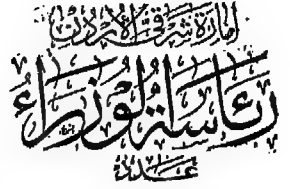 امارة شرقي الأردن
رئاسة الوزراء
عدد